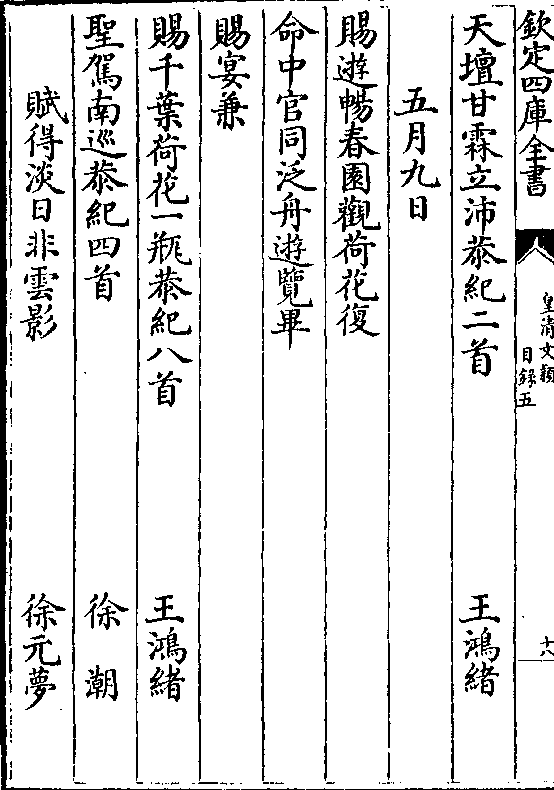 欽定四庫全書
皇清文穎
目錄五
十八
天壇甘霖立沛恭紀二首 王鴻緒
五月九日
賜遊暢春園觀荷花復
命中官同泛舟遊覽畢
賜宴兼
賜千葉荷花一瓶恭紀八首 王鴻緒
聖駕南巡恭紀四首 徐潮
賦得淡日非雲影 徐元夢